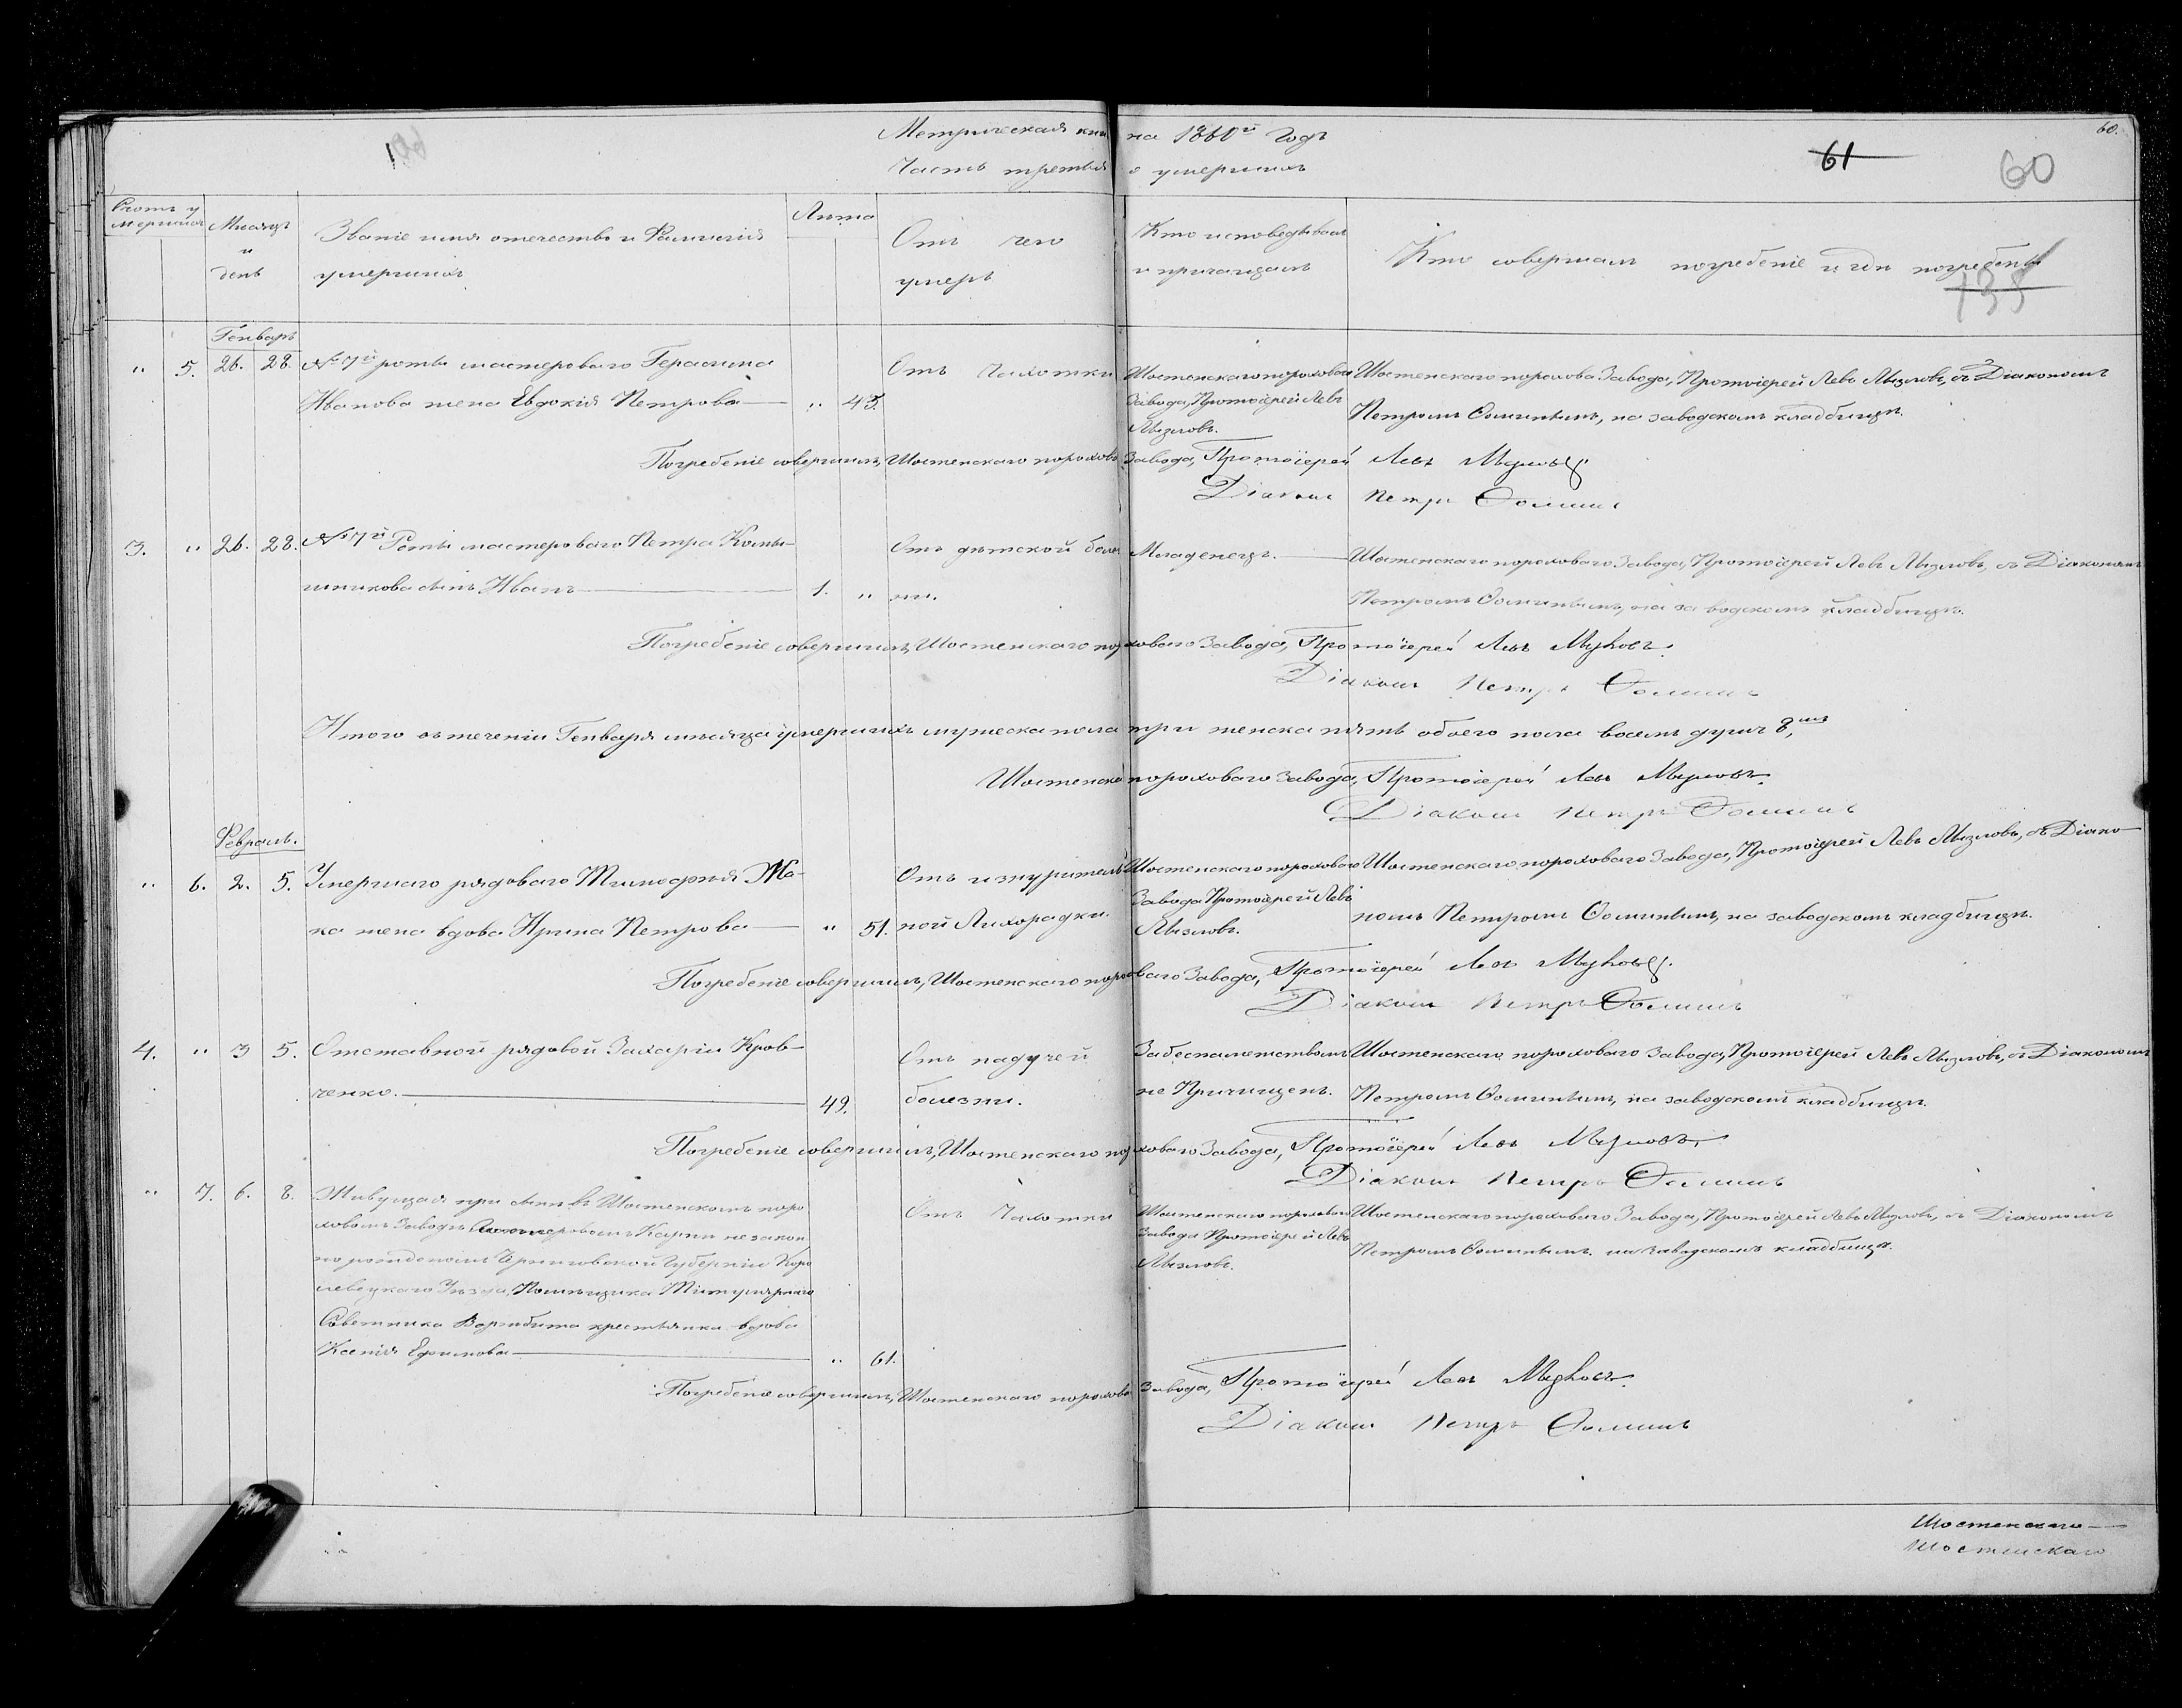 Метрическая кни на 1860й Годъ
Часть третья о умершихъ
61
60
60.
Счотъ у мершихъ
Мѣсяцъ и день
Званіе имя отечество и Фамилія умершихъ
Лѣта
Отъ чего умеръ
Кто исповедывалъ и причащалъ
Кто совершалъ погребеніе и гдѣ погребены
135
Генварь
" 5. 26. 28. №7й роты мастероваго Герасима
Иванова жена Евдокія Петрова " 43.
Отъ чахотки
Шостенскаго пороховаго
Завода, Протоіерей Левъ
Мызловъ.
Шостенскаго порохова Завода, Протоіерей Левъ Мызловъ, съ Діакономъ
Петромъ Ѳоминымъ, на заводскомъ кладбищѣ.
Погребеніе совершилъ, Шостенскаго порохова Завода, Протоіерей Левъ Мызловъ
Діаконъ Петръ Ѳоминъ
3. " 26. 28. №7й Роты мастероваго Петра
шникова сынъ Иванъ 1. "
Отъ дѣтской болѣ
зни.
Младенецъ.
Шостенскаго пороховаго Завода, Протоіерей Левъ Мызловъ, съ Діакономъ
Петромъ Ѳоминымъ, на за водскомъ кладбищѣ.
Погребеніе совершилъ, Шостенскаго пороховаго Завода, Протоіерей Левъ Мызловъ.
Діаконъ Петръ Ѳоминъ
Итого въ теченіи Генваря мѣсяца умершихъ мужеска пола три женска пять обоего пола восемь душъ 8,мь
Шостенска пороховаго завода, Протоіерей Левъ Мызловъ.
Діаконъ Петръ Ѳоминъ
Февраль.
" 6. 2. 5. Умершаго рядоваго Тимофѣя Жа-
ка жена вдова Ирина Петрова " 51.
Отъ изнуритель
ной Лихорадки.
Шостенскаго пороховаго
Завода Протоіерей Левъ
Мызловъ.
Шостенскаго пороховаго Завода, Протоіерей Левъ Мызловъ, съ Діако-
номъ Петромъ Ѳоминымъ, на заводскомъ кладбищѣ.
Погребеніе совершилъ, Шостенскаго пороховаго Завода, Протоіерей Левъ Мызловъ.
Діаконъ Петръ Ѳоминъ
4. " 3 5. Отставной рядовой Захарій Кров-
ченко. 49.
Отъ падучей
болезни.
За беспамятствомъ
не Причащенъ.
Шостенскаго пороховаго Завода, Протоіерей Левъ Мызловъ, съ Діакономъ
Петромъ Ѳоминымъ, на заводскомъ кладбищѣ.
Погребеніе совершилъ, Шостенскаго пороховаго Завода, Протоіерей Левъ Мызловъ
Діаконъ Петръ Ѳоминъ
" 7. 6. 8. Живущая при сынѣ въ Шостенскомъ поро
ховомъ Заводѣ Карпѣ незакон
но рожденомъ Черниговской Губерніи Кро
левецкаго Уѣзда, Помѣщика Титулярнаго
Советника крестьянка вдова
Ксенія Ефимова " 61.
Отъ Чахотки
Шостенскаго пороховаго
Завода Протоіерей Левъ
Мызловъ.
Шостенскаго пороховаго Завода, Протоіерей Левъ Мызловъ, съ Діакономъ
Петромъ Ѳоминымъ на заводскомъ кладбищѣ.
Погребеніе совершилъ, Шостенскаго порохова Завода, Протоіерей Левъ Мызловъ.
Діаконъ Петръ Ѳоминъ
Шостенскаго
Шостенскаго